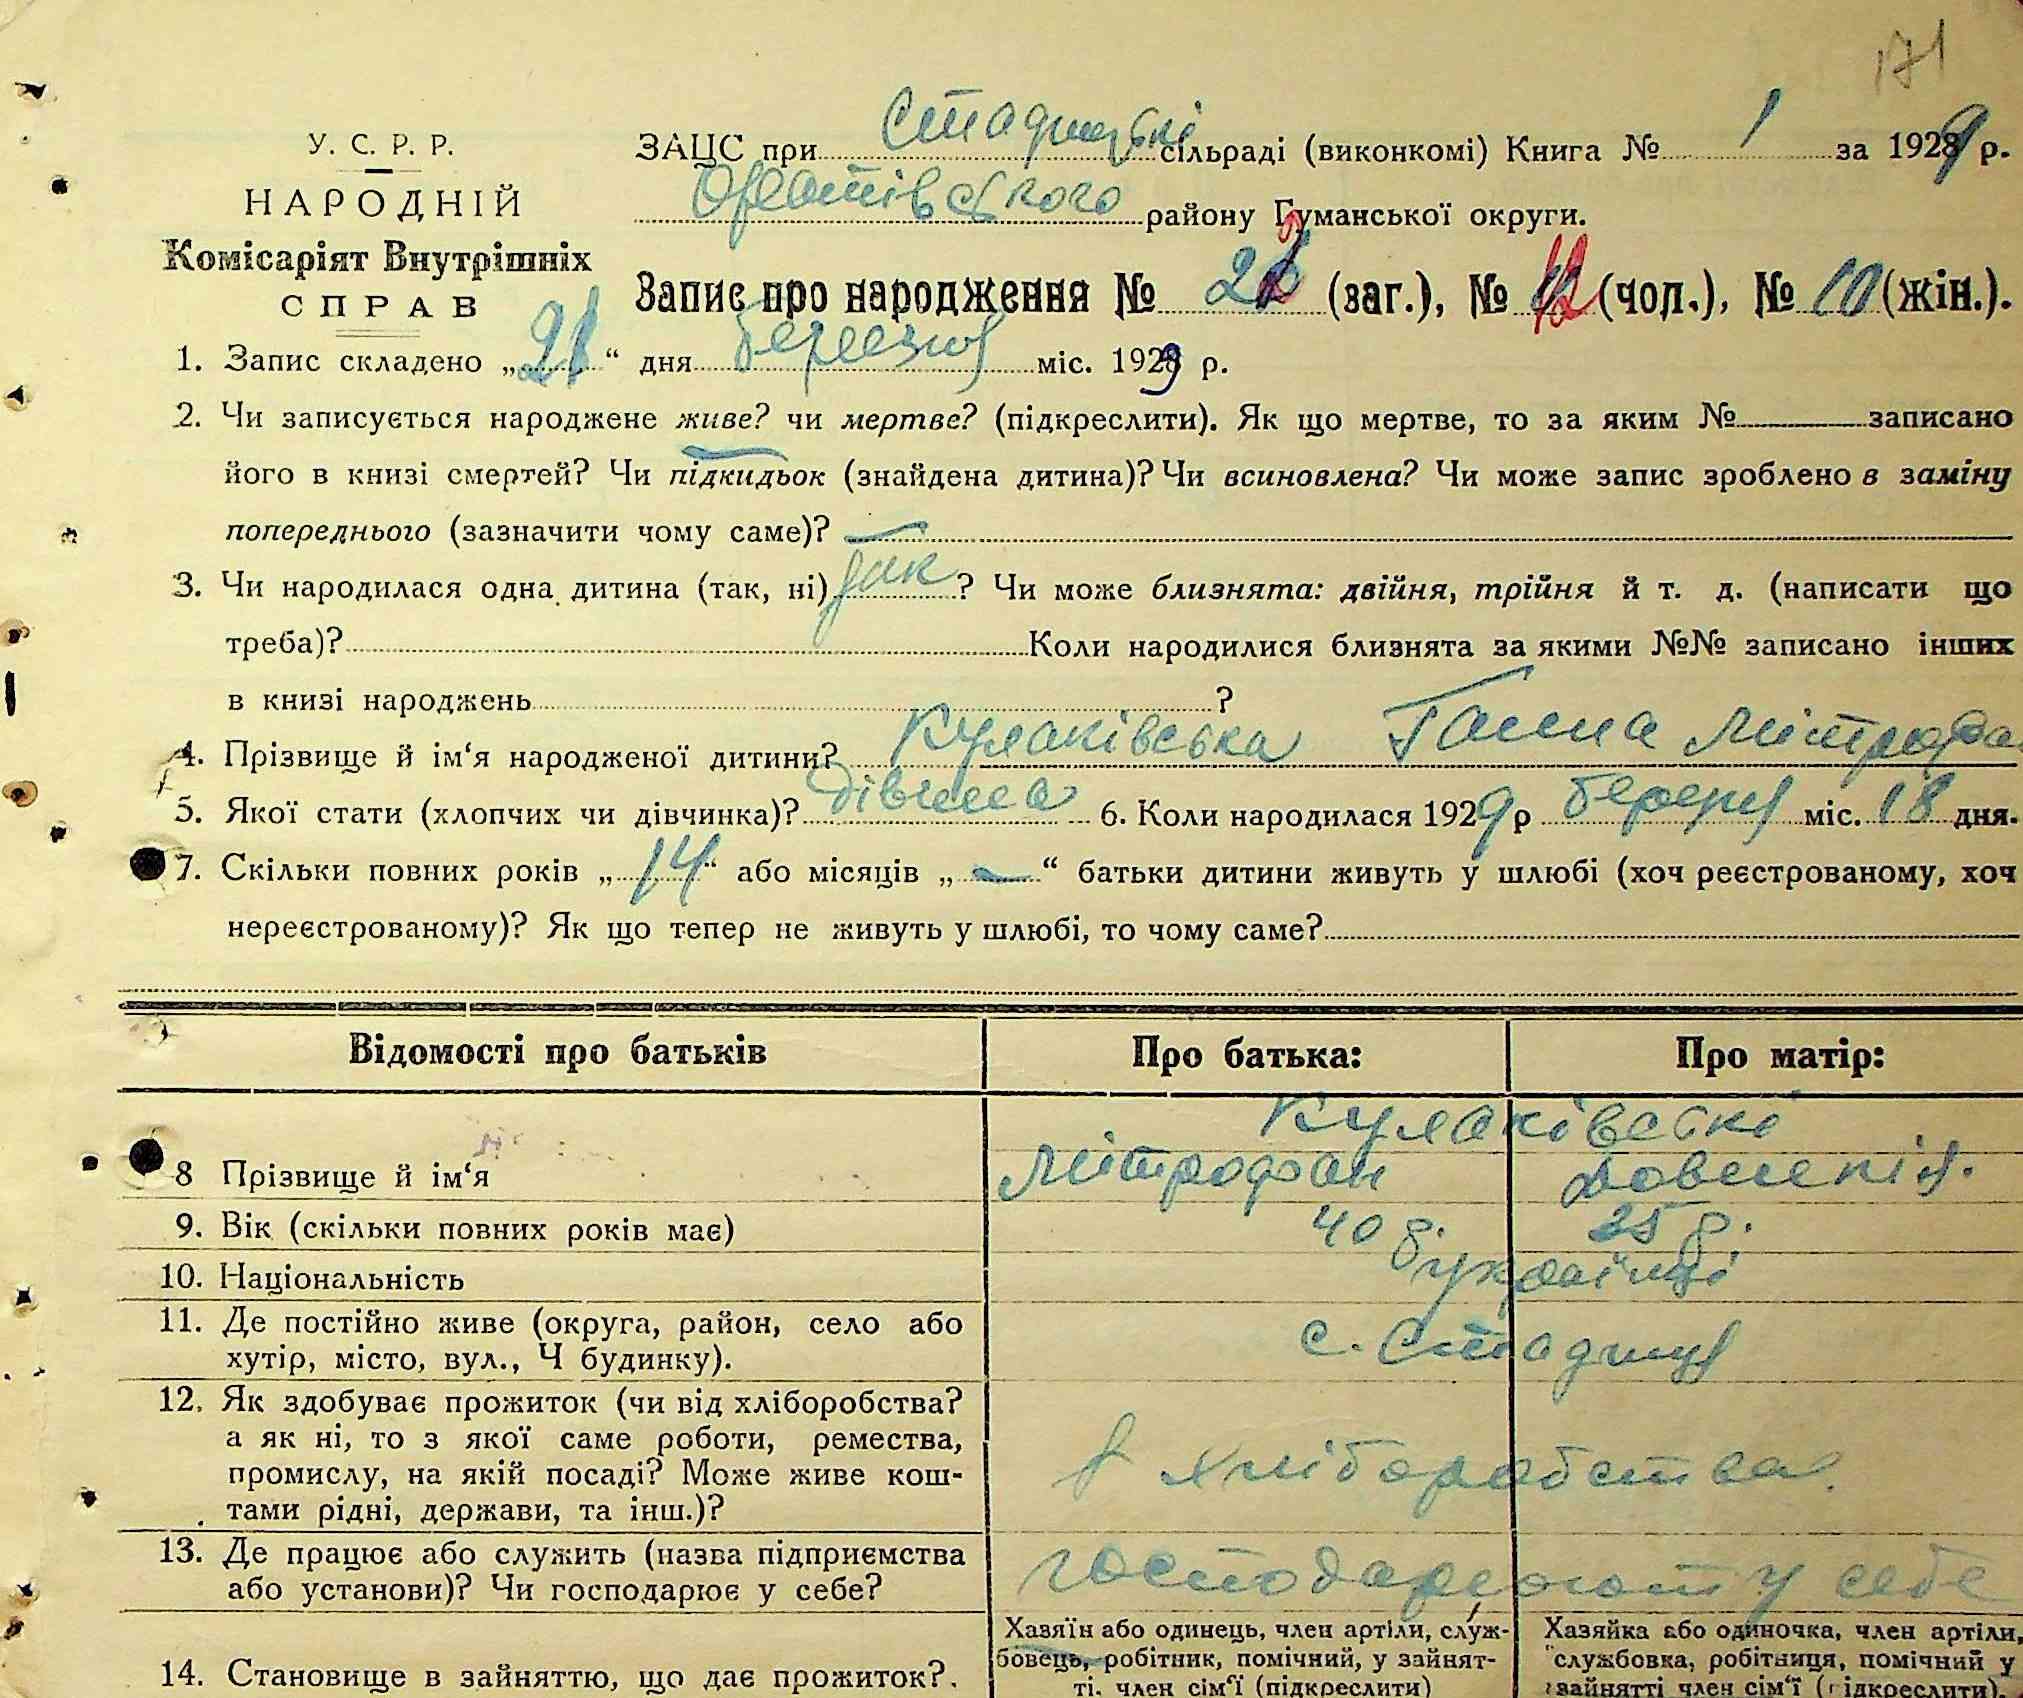 171
У. С. Р. Р.
НАРОДНІЙ
Комісаріят Внутрішніх
СПРАВ
ЗАЦС при Стадницькі сільраді (виконкомі) Книга № 1 за 1929 р.
Оратівського району Гуманської округи.
Запис про народження № 22 (заг.), № 12 (чол.), № 10 (жін.).
1. Запис складено „21“ дня березня міс. 1929 р.
2. Чи записується народжене живе? чи мертве? (підкреслити). Як що мертве, то за яким № записано
його в книзі смертей? Чи підкидьок (знайдена дитина)? Чи всиновлена? Чи може запис зроблено в заміну
попереднього (зазначити чому саме)? —
3. Чи народилася одна дитина (так, ні) так? Чи може близнята: двійня, трійня й т. д. (написати що
треба)? Коли народилися близнята за якими №№ записано інших
в книзі народжень ?
4. Прізвище й ім‘я народженої дитини? Кулаківська Ганна Мітрофа
5. Якої стати (хлопчих чи дівчинка)? дівчина 6. Коли народилася 1929 р березня міс. 18 дня.
7. Скільки повних років „14“ або місяців „—“ батьки дитини живуть у шлюбі (хоч реєстрованому, хоч
нереєстрованому)? Як що тепер не живуть у шлюбі, то чому саме?
Відомості про батьків Про батька: Про матір:
Кулаківські
8 Прізвище й ім‘я Мітрофан
9. Вік (скільки повних років має) 40 р. 35 р.
10. Національність Українці
11. Де постійно живе (округа, район, село або
хутір, місто, вул., Ч будинку). с. Стадниця
12. Як здобуває прожиток (чи від хліборобства?
а як ні, то з якої саме роботи, ремества,
промислу, на якій посаді? Може живе кош-
тами рідні, держави, та інш.)? з хліборобства.
13. Де працює або служить (назва підприємства
або установи)? Чи господарює у себе? господарюють у себе
14. Становище в зайняттю, що дає прожиток?.
Хазяїн або одинець, член артіли, служ-
бовець, робітник, помічний, у зайнят-
ті. член сім‘ї (підкреслити)
Хазяйка або одиночка, член артіли,
службовка, робітниця, помічний у
зайнятті член сім‘ї (підкреслити).